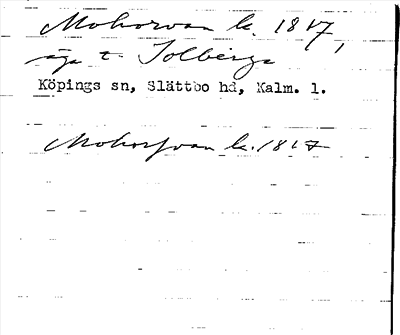 Mohorvan k. 1817,
äga t. Solberga
Köpings sn, Slättbo hd, Kalm. l.
Mohorfvan k. 1817